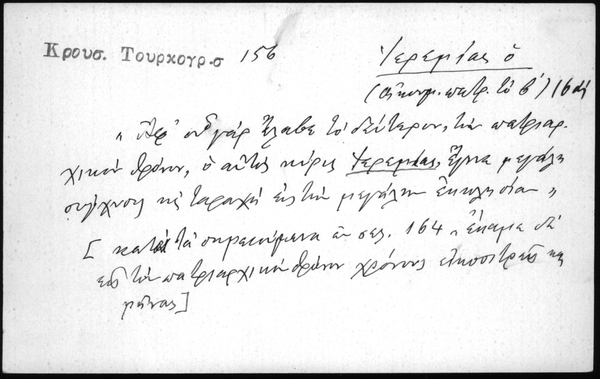 Κρουσ. Τουρκογρ-σ 156 Ἱερεμίας ὁ
(Οἰκουμ. πατρ. τὸ β') 16 αἰ
"Ἀφ' οὗ γὰρ ἔλαβε τὸ δεύτερον, τὴν πατριαρ-
χικὸν θρόνον, ὁ αὐτὸς κύρις Ἱερεμίας, ἔγινε μεγάλη
σύγχυσις κὶ ταραχὴ εἰς τὴν μεγάλην ἐκκλησίαν"
[ κατὰ τὰ σημειούμενα ἐν σελ. 164 "ἔκαμε δὲ
εἰς τὸν πατριαρχικὸν θρόνον χρόνους εἰκοσιτρεῖς κὶ
μῆνας]